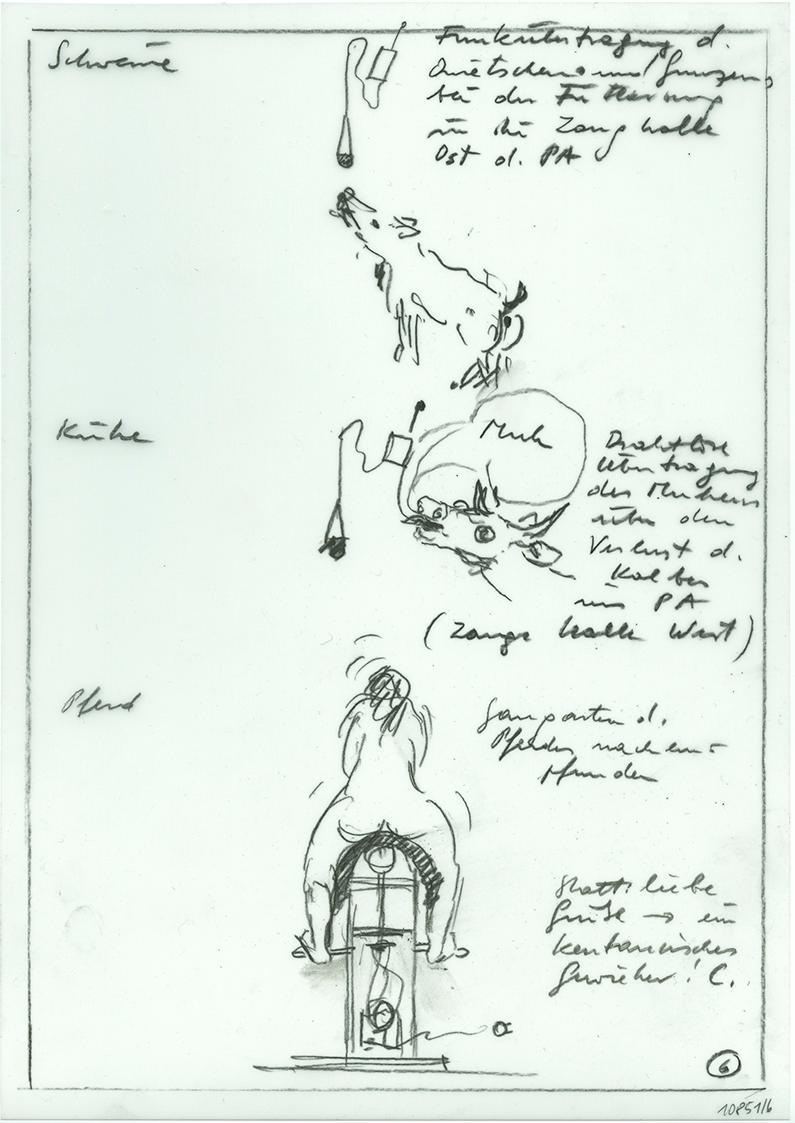 Schweine
Funkübertragung d.
Quietschens und Grunzens
bei der Fütterung
in die Zanghalle
Ost d. PA
Kühe
Muh
Drahtlose
Übertragung
des Muhens
über den
Verlust d.
Kalbes
ins PA
(Zange halle West)
Pferd
Gangarten d.
Pferdes nachem=
pfunden
statt liebe
Grüße → ein
kentaurisches
Gewieher! C.
6
10851/6